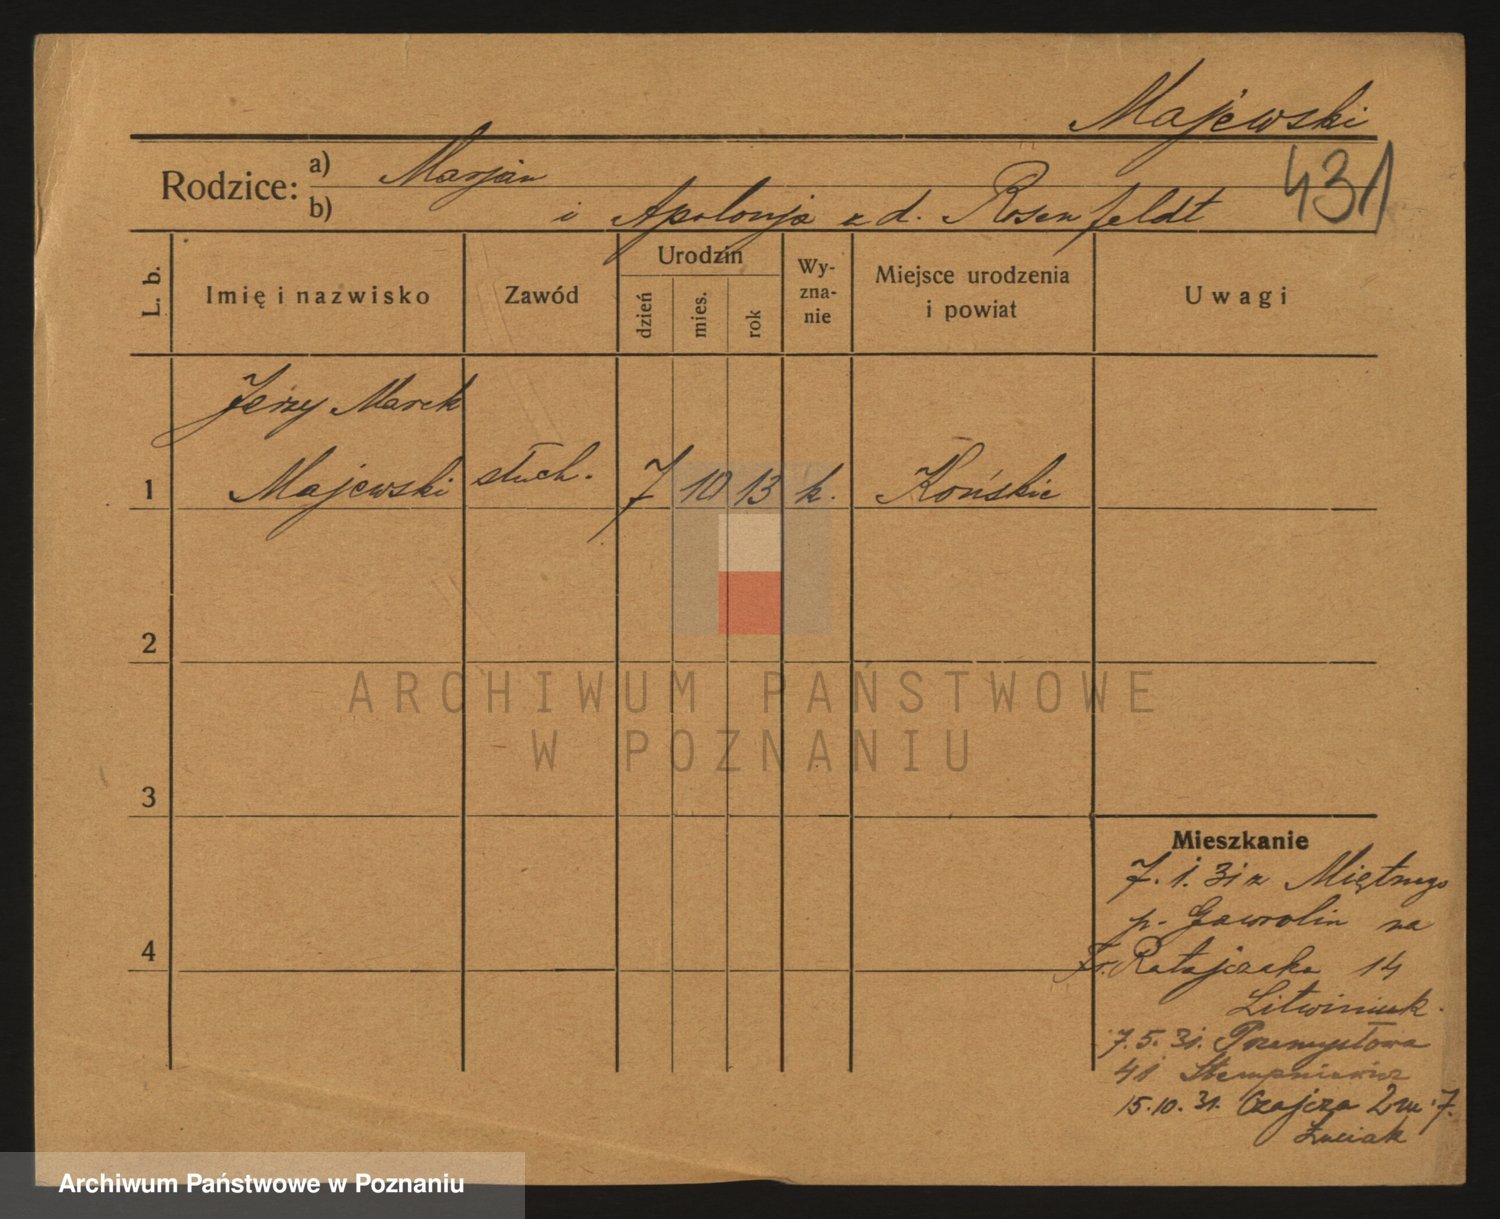 Majewski
431
Rodzice: a) Marjan
b) i Apolonja z d. Rosenfeldt
L. b.
Imię i nazwisko
Zawód
Urodzin
dzień
mies.
rok
Wy-
zna-
nie
Miejsce urodzenia
i powiat
Uwagi
Jerzy Marek
1 Majewski słuch. 7 10 13 k. Końskie
2
3
4
Mieszkanie
7. 1. 31 z Miętnego
p. Garwolin na
Fr. Ratajczaka 14
Litwiniuk.
7. 5. 31. Przemysłowa
41 Stempniewicz
15. 10. 31. Czajcza 2 m. 7.
Łuciak
ARCHIWUM PAŃSTWOWE
W POZNANIU
Archiwum Państwowe w Poznaniu